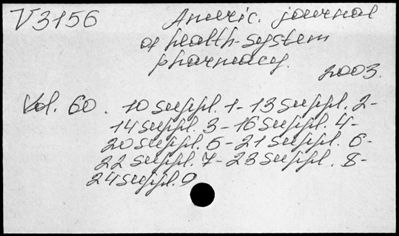 V3156 Americ. journal
of health-system
pharmacy.
2003.
Vol. 60. 10 suppl. 1- 13 suppl. 2-
14 suppl. 3- 16 suppl. 4-
20 suppl. 5- 21 suppl. 6-
22 suppl. 7- 23 suppl. 8-
24 suppl. 9